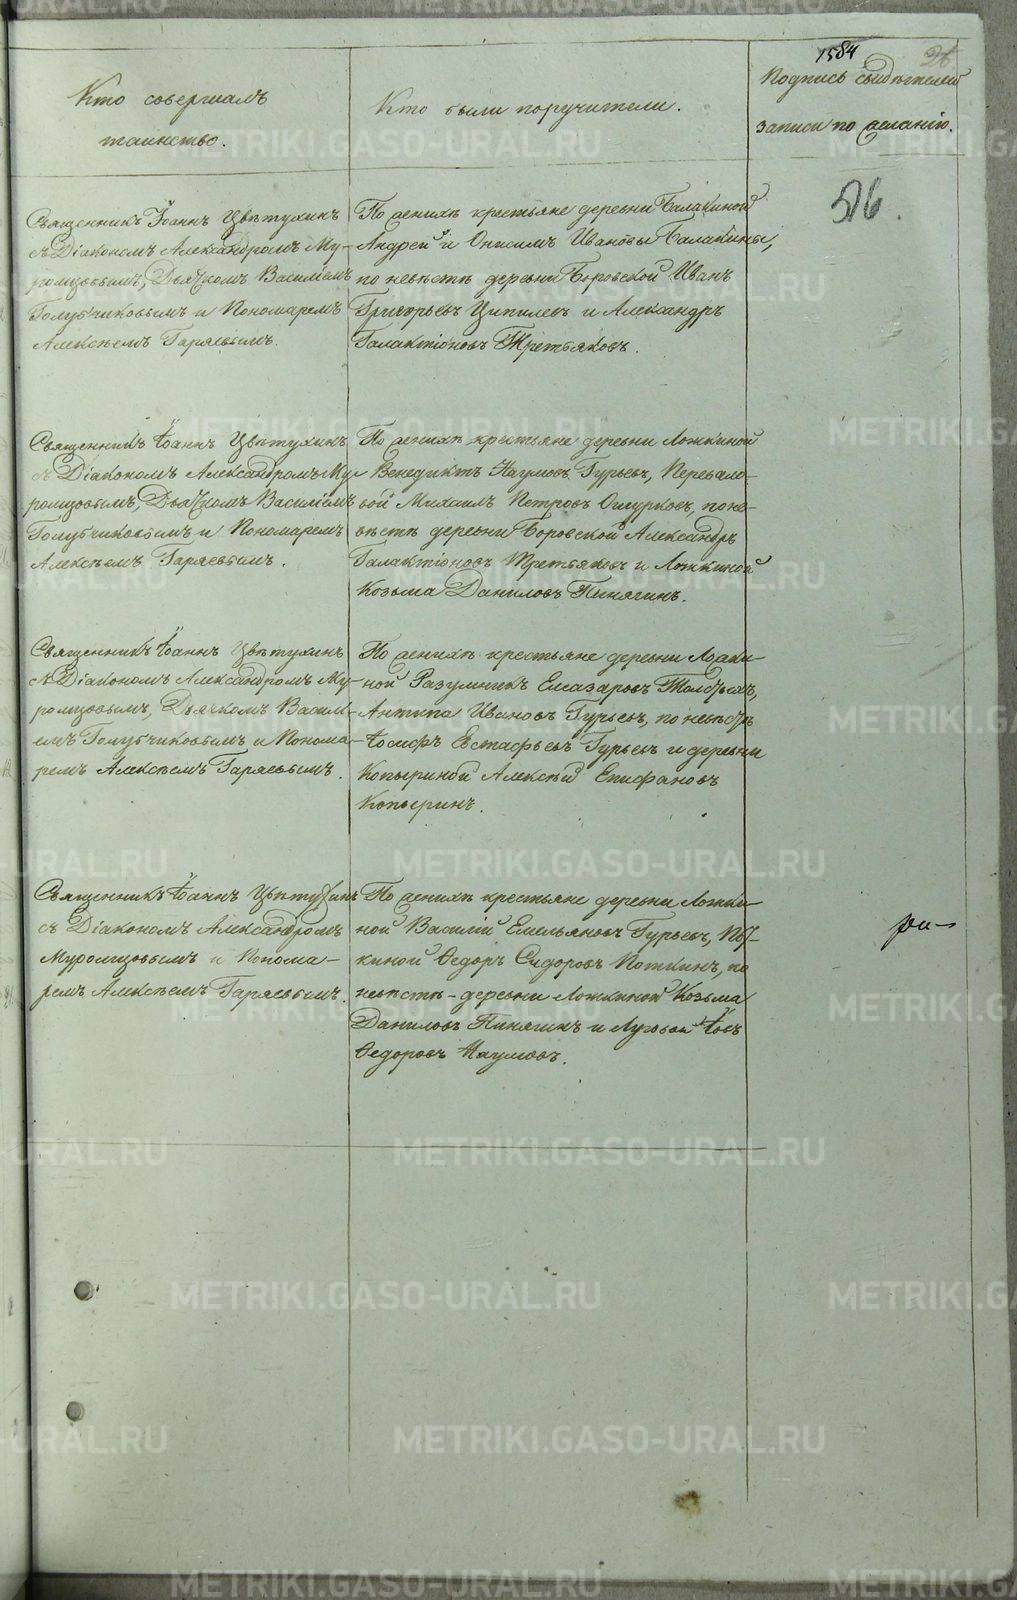 1584
26
Кто совершалъ
таинство.
Кто были поручители.
Подпись свидѣтелей
записи по желанію.
516.
Священникъ Іоаннъ Цвѣтухинъ
съ Діакономъ Александромъ Му-
ромцовымъ, Дьячкомъ Василіемъ
Голубчиковымъ и Пономаремъ
Алексѣемъ Гаряевымъ.
По женихѣ крестьяне деревни Балакиной
Андрей и Онисимъ Ивановы Балакины,
по невѣстѣ деревни Боровской Иванъ
Григорьевъ Ципилевъ и Александръ
Галактіоновъ Третьяковъ.
Священникъ Іоаннъ Цвѣтухинъ
съ Діакономъ Александромъ Му-
ромцовымъ, Дьячкомъ Василіемъ
Голубчиковымъ и Пономаремъ
Алексѣемъ Гаряевымъ.
По женихѣ крестьяне деревни Ложкиной
Венедиктъ Наумовъ Гурьевъ, Перевало-
вой Михаилъ Петровъ Ошурковъ, по не-
вѣстѣ деревни Боровской Александръ
Галактіоновъ Третьяковъ и Ложкиной
Козьма Даниловъ Пинягинъ.
Священникъ Іоаннъ Цвѣтухинъ
съ Діакономъ Александромъ Му-
ромцовымъ, Дьячкомъ Васил-
емъ Голубчиковымъ и Понома-
ремъ Алексѣемъ Гаряевымъ.
По женихѣ крестьяне деревни Ложки-
ной Разумникъ Елеазаровъ
Антипа Ивановъ Гурьевъ, по невѣстѣ
Іосифъ Евстафьевъ Гурьевъ и деревни
Копыриной Алексѣй Епифановъ
Копыринъ.
Священникъ Іоаннъ Цвѣтухинъ
съ Діакономъ Александромъ
Муромцовымъ и Понома-
ремъ Алексѣемъ Гаряевымъ.
По женихѣ крестьяне деревни Ложки-
ной Василій Емельяновъ Гурьевъ,
киной Ѳедоръ Сидоровъ Поткинъ, по
невѣстѣ - деревни Ложкиной Козьма
Даниловъ Пинягинъ и Луговой Іовъ
Ѳедоровъ Наумовъ.
METRIKI.GASO-URAL.RU